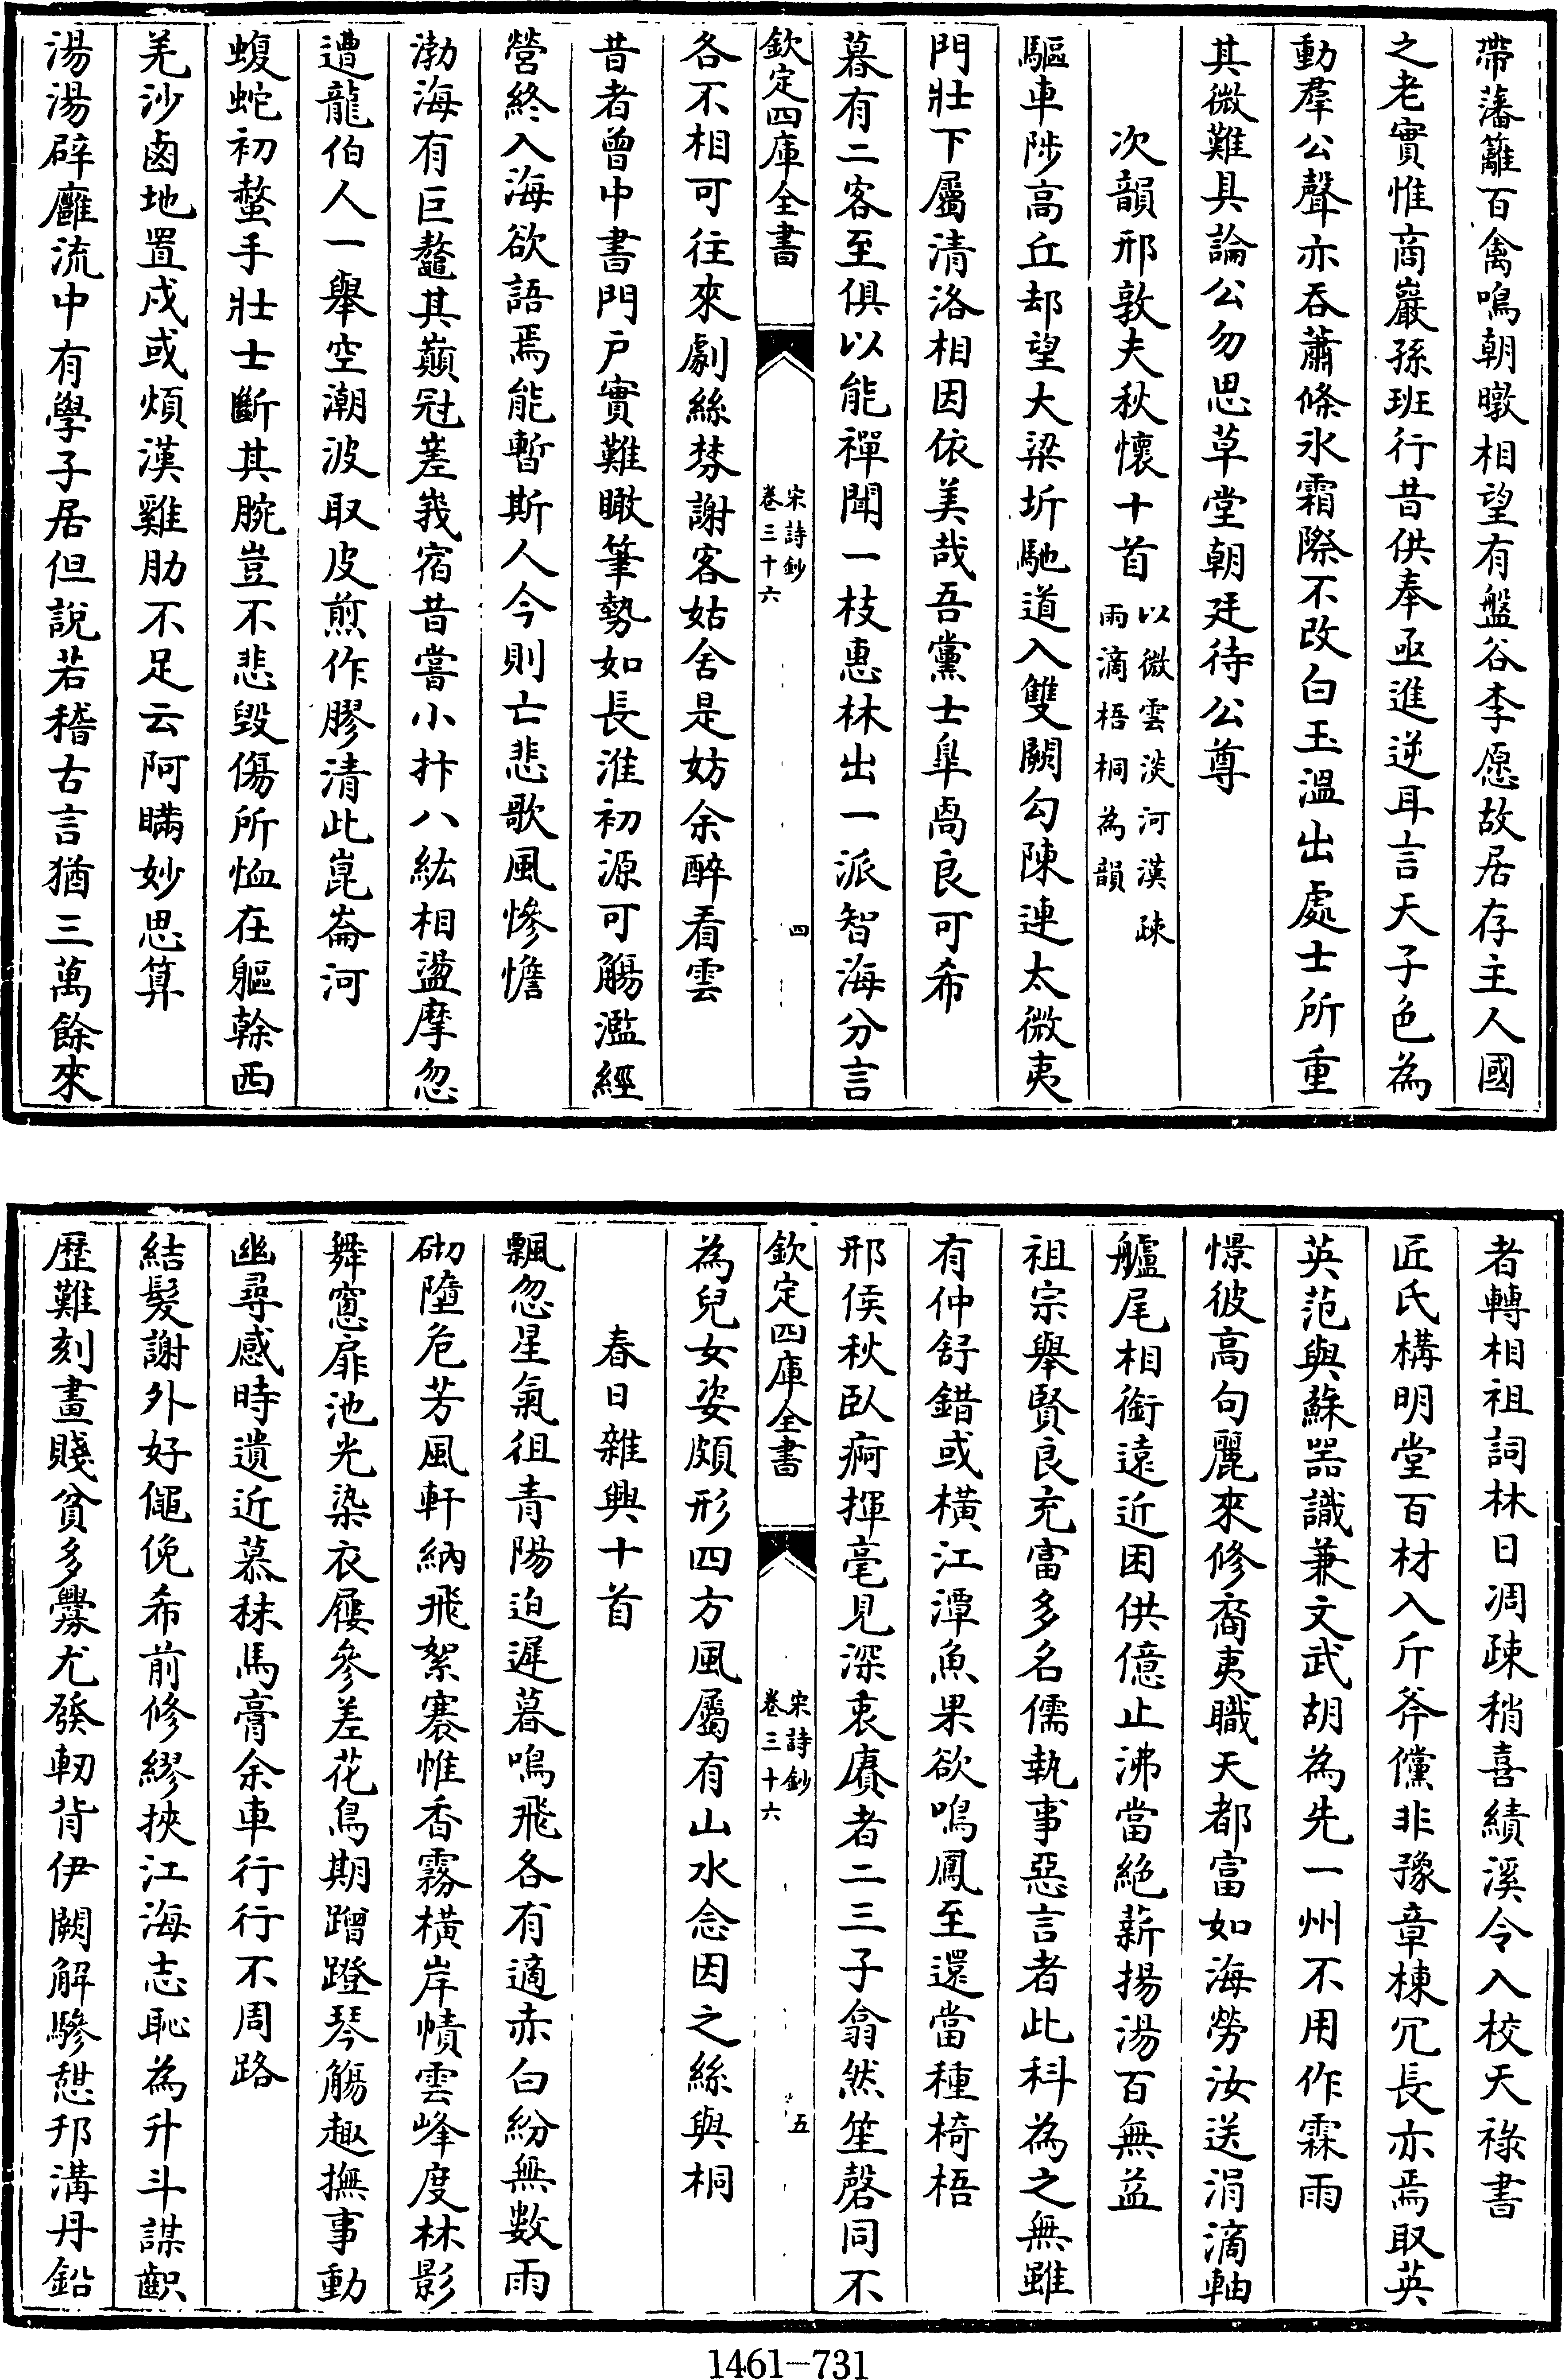 帶藩籬百禽鳴朝暾相望有盤谷李愿故居存主人國
之老實惟商巖孫班行昔供奉亟進逆耳言天子色為
動羣公聲亦吞蕭條氷霜際不改白玉溫出處士所重
其微難具論公勿思草堂朝廷待公尊
次韻邢敦夫秋懷十首以微雲淡河漢疎
雨滴梧桐為韻
驅車陟高丘却望大梁圻馳道入雙闕勾陳連太微夷
門壯下屬清洛相因依美哉吾黨士臯卨良可希
暮有二客至俱以能禪聞一枝惠林出一派智海分言
欽定四庫全書
宋詩鈔
卷三十六
四
各不相可往來劇絲棼謝客姑舍是妨余醉看雲
昔者曾中書門戶實難瞰筆勢如長淮初源可觴濫經
營終入海欲語焉能暫斯人今則亡悲歌風慘憺
渤海有巨鼇其巔冠嵳峩宿昔嘗小抃八紘相盪摩忽
遭龍伯人一舉空潮波取皮煎作膠清此崑崙河
蝮蛇初螫手壯士斷其腕豈不悲毀傷所恤在軀榦西
羌沙鹵地置戍或煩漢雞肋不足云阿瞞妙思算
湯湯辟廱流中有學子居但說若稽古言猶三萬餘來
者轉相祖詞林日凋疎稍喜績溪令入校天祿書
匠氏構明堂百材入斤斧儻非豫章棟冗長亦焉取英
英范與蘇器識兼文武胡為先一州不用作霖雨
憬彼高句麗來修裔夷職天都富如海勞汝送涓滴軸
艫尾相銜遠近困供億止沸當絕薪揚湯百無益
祖宗舉賢良充富多名儒執事惡言者此科為之無雖
有仲舒錯或橫江潭魚果欲鳴鳳至還當種椅梧
邢侯秋臥痾揮毫見深衷賡者二三子翕然笙磬同不
欽定四庫全書
宋詩鈔
卷三十六
五
為兒女姿頗形四方風屬有山水念因之絲與桐
春日雜興十首
飄忽星氣徂青陽迫遲暮鳴飛各有適赤白紛無數雨
砌墮危芳風軒納飛絮褰帷香霧橫岸幘雲峰度林影
舞窻扉池光染衣屨參差花鳥期蹭蹬琴觴趣撫事動
幽尋感時遺近慕秣馬膏余車行行不周路
結髮謝外好僶俛希前修繆挾江海志恥為升斗謀齞
歷難刻畫賤貧多釁尤發軔背伊闕解驂憇邗溝丹鉛
1461—731